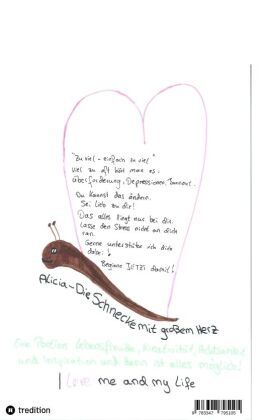 "Zu viel - einfach zu viel"
viel zu oft hört man es.
Überforderung, Depressionen, Burnout.
Du kannst das ändern.
Sei lieb zu dir!
Das alles liegt nur bei dir.
Lasse den Stress nicht an dich
ran.
Gerne unterstütze ich dich
dabei.
Beginne JETZT damit!
Alicia - Die Schnecke mit großem Herz
Eine Portion Lebensfreude, Kreativität, Achtsamkeit
und Inspiration und dann ist alles möglich!
I Love me and my Life
tredition
9 783347 795105